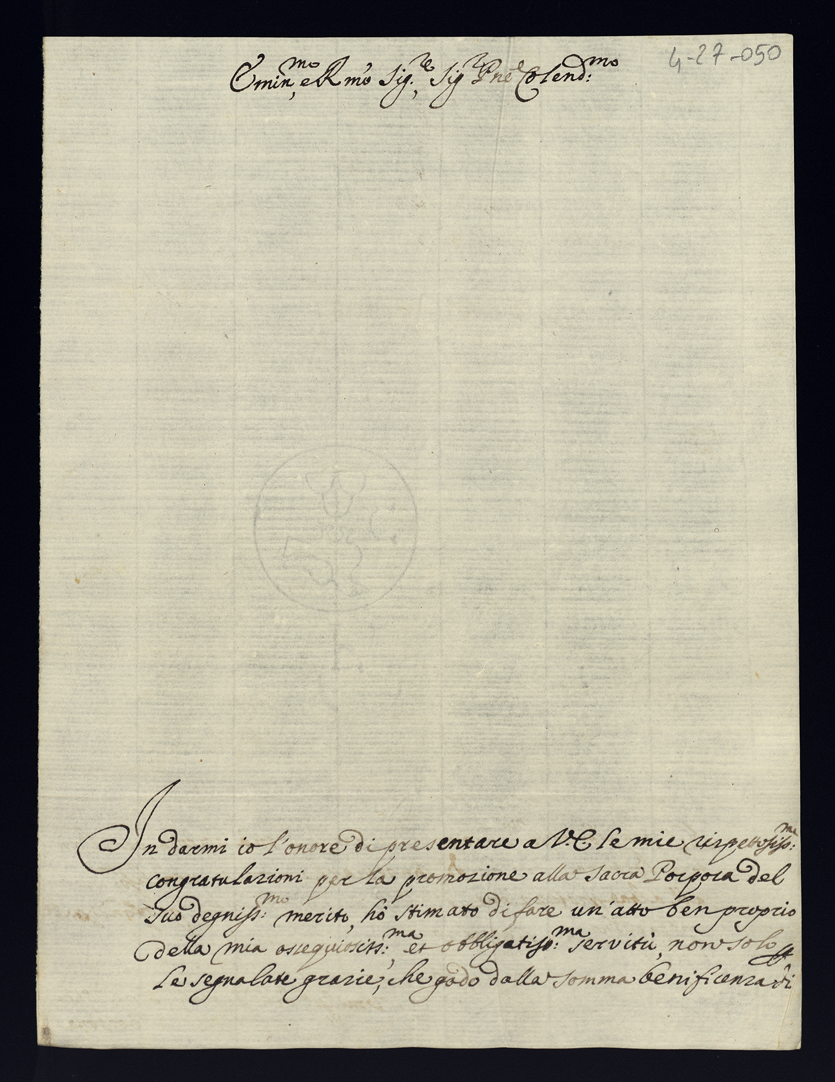 4-27-050
Emin.mo e Rmo Sig.re Sig.r Pne Colend:mo
In darmi io l'onore di presentare a V. E. le mie rispettosiss:me
congratulazioni per la promozione alla Sacra Porpora del
suo degniss:mo merito, hò stimato di fare un'atto ben proprio
della mia ossequiosiss:ma et obbligatiss:ma servitù, non solo
le segnalate grazie, che godo dalla somma benificenza di